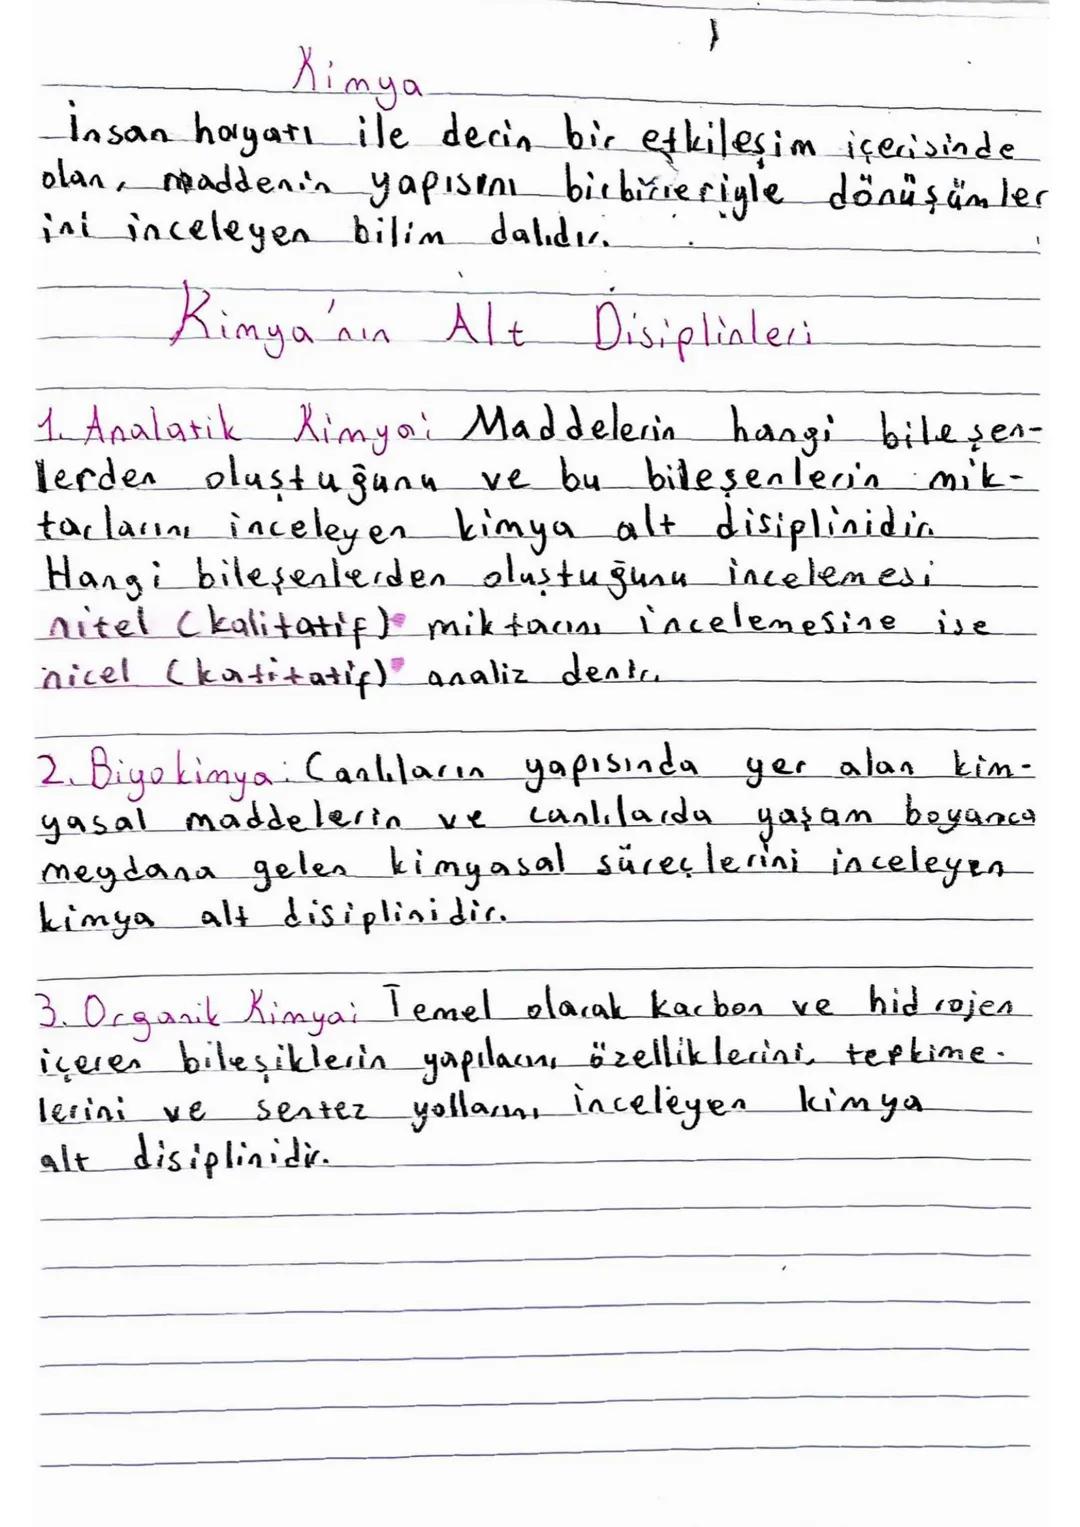 Kimya
İnsan hayatı ile derin bir etkileşim içerisinde
olan, maddenin yapısını birbirleriyle dönüşümler
ini inceleyen bilim dalıdır.
Kimya'nın Alt Disiplinleri
1. Analatik Kimya: Maddelerin hangi bileşen-
lerden oluştuğunu ve bu bileşenlerin mik-
tarlarını inceleyen kimya alt disiplinidir.
Hangi bileşenlerden oluştuğunu incelemesi
nitel (kalitatif) miktarını incelemesine ise
nicel (katitatif) analiz denir.
2. Biyokimya: Canlıların yapısında yer alan kim-
yasal maddelerin ve canlılarda yaşam boyunca
meydana gelen kimyasal süreçlerini inceleyen
kimya alt disiplinidir.
3. Organik Kimya: Temel olarak karbon ve hidrojen
içeren bileşiklerin yapılarını özelliklerini, tepkime-
lerini ve sentez yollarını inceleyen kimya
alt disiplinidir.